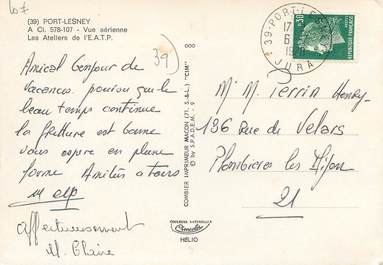 (39) PORT-LESNEY
A Ci. 578-107 - Vue aérienne
Les Ateliers de l'E.A.T.P.
39
Amical bonjour de
vacances pourvu que le
beau temps continue
la friture est bonne
vous espere en pleine
forme Amitiés a tous
affectueusement
M. Claire
COMBIER IMPRIMEUR MACON (71-S.-&-L.) "CIM"
© by S.P.A.D.E.M.
COULEURS NATURELLES
Cimcolor
HÉLIO
39-PORT-LESNEY
17
6
JURA
0,30
M. M. Perrin Henry
136 Rue du Velars
Plombieres les Dijon
21